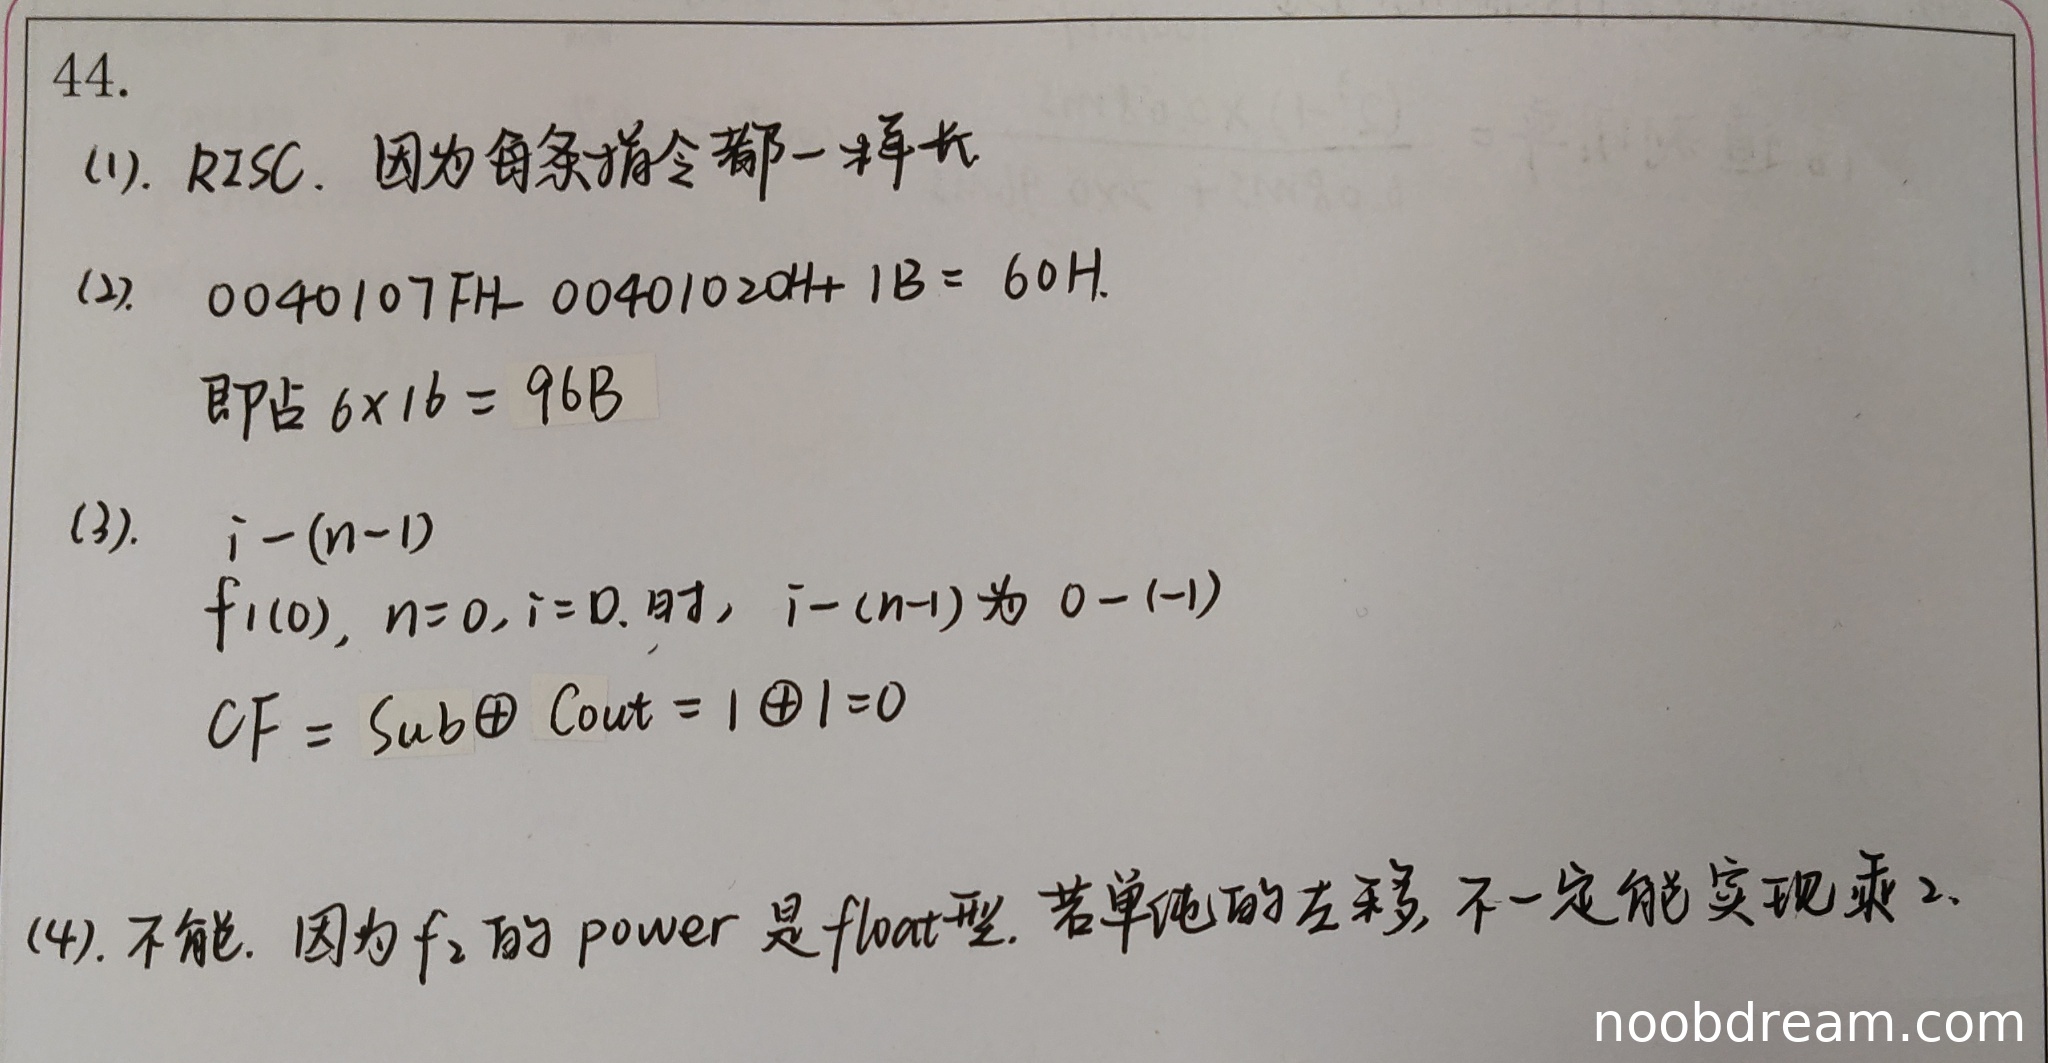 44.
(1). RISC. 因为每条指令都一样长
(2). 0040107FH- 00401020H+ 1B = 60H.
即占 6×16 = 96B
(3). i-(n-1)
f1(0), n=0, i=0.时, i-(n-1)为 0-(-1)
CF = Sub⊕ Cout = 1⊕1=0
(4). 不能. 因为f2的 power 是float型. 若单纯的左移, 不一定能实现乘2.
noobdream.com